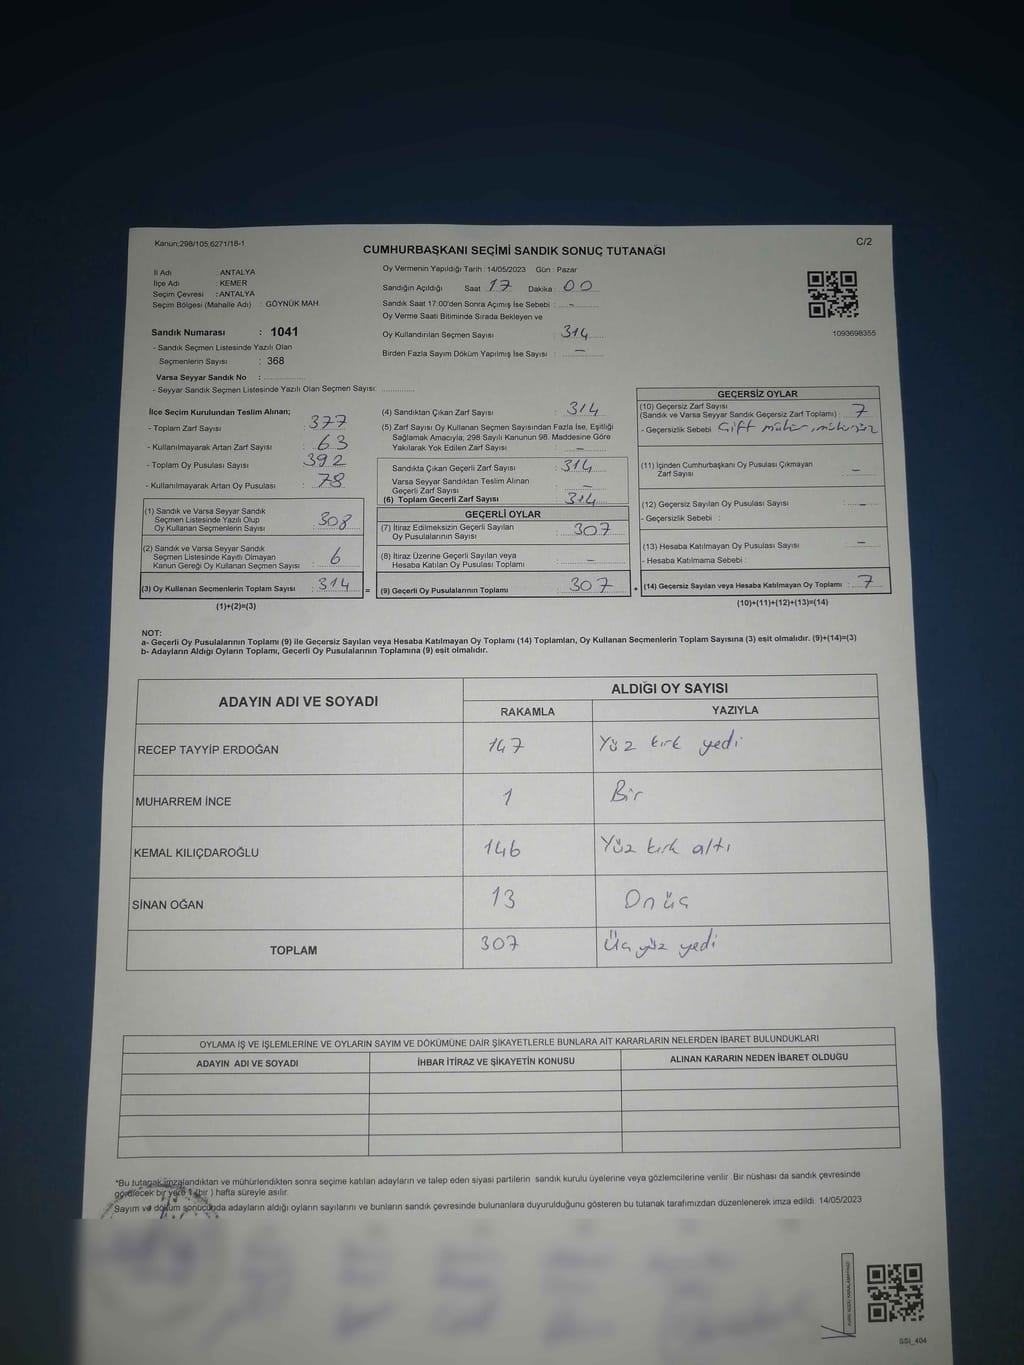 Kanun;298/105,6271/18-1
C/2
CUMHURBAŞKANI SEÇİMİ SANDIK SONUÇ TUTANAĞI
İl Adı : ANTALYA
İlçe Adı : KEMER
Seçim Çevresi : ANTALYA
Seçim Bölgesi (Mahalle Adı) : GÖYNÜK MAH.
Oy Vermenin Yapıldığı Tarih : 14/05/2023 Gün : Pazar
Sandığın Açıldığı Saat 17 Dakika: 00
Sandık Saat 17:00'den Sonra Açımış İse Sebebi : -
Oy Verme Saati Bitiminde Sırada Bekleyen ve
Oy Kullandırılan Seçmen Sayısı : 314
Birden Fazla Sayım Döküm Yapılmış İse Sayısı : -
1093698355
Sandık Numarası : 1041
- Sandık Seçmen Listesinde Yazılı Olan
Seçmenlerin Sayısı : 368
Varsa Seyyar Sandık No :
- Seyyar Sandık Seçmen Listesinde Yazılı Olan Seçmen Sayısı:
İlçe Seçim Kurulundan Teslim Alınan;
- Toplam Zarf Sayısı : 377
- Kullanılmayarak Artan Zarf Sayısı : 63
- Toplam Oy Pusulası Sayısı : 392
- Kullanılmayarak Artan Oy Pusulası : 78
(1) Sandık ve Varsa Seyyar Sandık
Seçmen Listesinde Yazılı Olup
Oy Kullanan Seçmenlerin Sayısı : 308
(2) Sandık ve Varsa Seyyar Sandık
Seçmen Listesinde Kayıtlı Olmayan
Kanun Gereği Oy Kullanan Seçmen Sayısı : 6
(3) Oy Kullanan Seçmenlerin Toplam Sayısı : 314
(1)+(2)=(3)
=
(4) Sandıktan Çıkan Zarf Sayısı : 314
(5) Zarf Sayısı Oy Kullanan Seçmen Sayısından Fazla İse, Eşitliği
Sağlamak Amacıyla; 298 Sayılı Kanunun 98. Maddesine Göre
Yakılarak Yok Edilen Zarf Sayısı : -
Sandıkta Çıkan Geçerli Zarf Sayısı : 314
Varsa Seyyar Sandıktan Teslim Alınan
Geçerli Zarf Sayısı : -
(6) Toplam Geçerli Zarf Sayısı : 314
GEÇERLİ OYLAR
(7) İtiraz Edilmeksizin Geçerli Sayılan
Oy Pusulalarının Sayısı : 307
(8) İtiraz Üzerine Geçerli Sayılan veya
Hesaba Katılan Oy Pusulası Toplamı : -
(9) Geçerli Oy Pusulalarının Toplamı : 307
+
GEÇERSİZ OYLAR
(10) Geçersiz Zarf Sayısı
(Sandık ve Varsa Seyyar Sandık Geçersiz Zarf Toplamı) : 7
- Geçersizlik Sebebi : Çift mühür, mühürsüz
(11) İçinden Cumhurbaşkanı Oy Pusulası Çıkmayan
Zarf Sayısı : -
(12) Geçersiz Sayılan Oy Pusulası Sayısı : -
- Geçersizlik Sebebi :
(13) Hesaba Katılmayan Oy Pusulası Sayısı : -
- Hesaba Katılmama Sebebi :
(14) Geçersiz Sayılan veya Hesaba Katılmayan Oy Toplamı : 7
(10)+(11)+(12)+(13)=(14)
NOT:
a- Geçerli Oy Pusulalarının Toplamı (9) ile Geçersiz Sayılan veya Hesaba Katılmayan Oy Toplamı (14) Toplamları, Oy Kullanan Seçmenlerin Toplam Sayısına (3) eşit olmalıdır. (9)+(14)=(3)
b- Adayların Aldığı Oyların Toplamı, Geçerli Oy Pusulalarının Toplamına (9) eşit olmalıdır.
ADAYIN ADI VE SOYADI
ALDIĞI OY SAYISI
RAKAMLA YAZIYLA
RECEP TAYYİP ERDOĞAN 147 Yüz kırk yedi
MUHARREM İNCE 1 Bir
KEMAL KILIÇDAROĞLU 146 Yüz kırk altı
SİNAN OĞAN 13 Onüç
TOPLAM 307 Üç yüz yedi
OYLAMA İŞ VE İŞLEMLERİNE VE OYLARIN SAYIM VE DÖKÜMÜNE DAİR ŞİKAYETLERLE BUNLARA AİT KARARLARIN NELERDEN İBARET BULUNDUKLARI
ADAYIN ADI VE SOYADI İHBAR İTİRAZ VE ŞİKAYETİN KONUSU ALINAN KARARIN NEDEN İBARET OLDUĞU
*Bu tutanak imzalandıktan ve mühürlendikten sonra seçime katılan adayların ve talep eden siyasi partilerin sandık kurulu üyelerine veya gözlemcilerine verilir. Bir nüshası da sandık çevresinde
görülecek bir yere 1 (bir) hafta süreyle asılır.
Sayım ve döküm sonucunda adayların aldığı oyların sayılarını ve bunların sandık çevresinde bulunanlara duyurulduğunu gösteren bu tutanak tarafımızdan düzenlenerek imza edildi. 14/05/2023
SSI_404